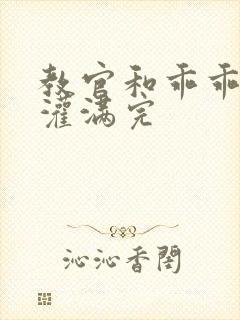 教官和乖乖
灌满完
沁沁香闺